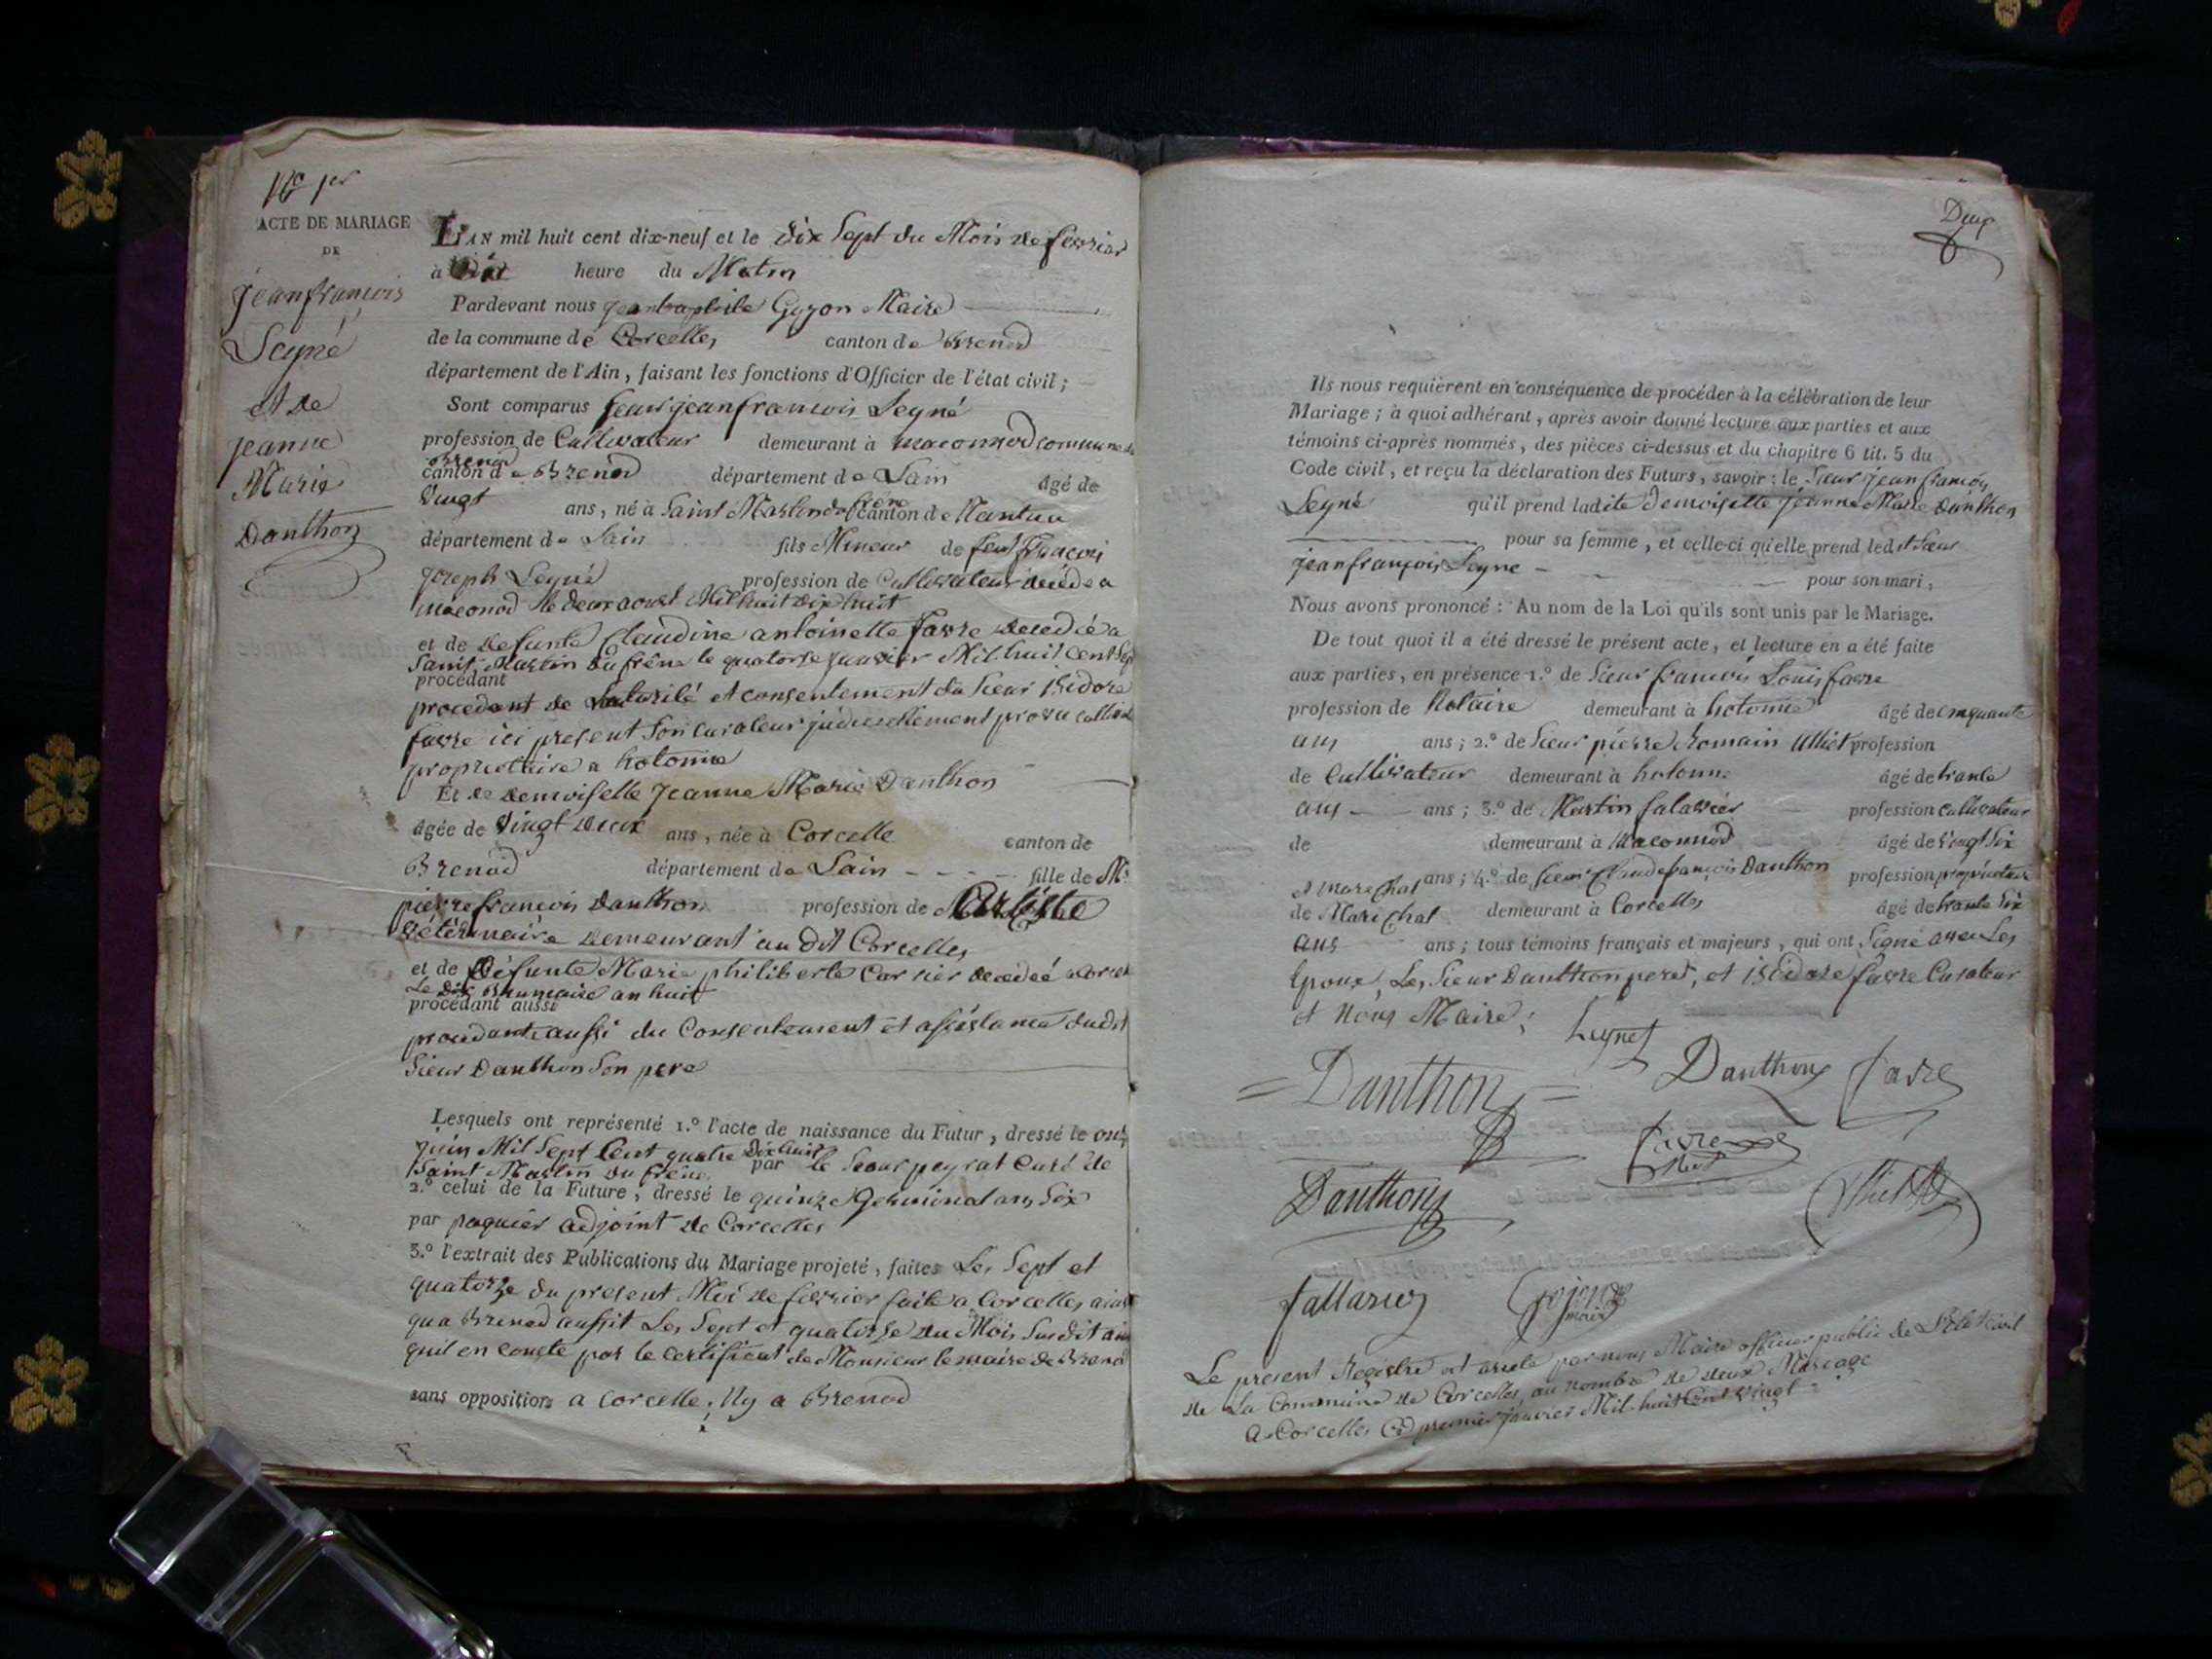 ACTE DE MARIAGE
DE
jeanfrançois
Seyné
et de
jeanne
Marie
Danthon
L'AN mil huit cent dix-neuf et le dix Sept du Mois de fevrier
à heure du Matin
Pardevant nous jeanbaptiste Goyon Maire
de la commune de Corcelles canton de Brenod
département de l'Ain, faisant les fonctions d'Officier de l'état civil;
Sont comparus jeanfrancois Seyné
profession de Cultivateur demeurant à maconnod commune de
Brenod
canton de Brenod département de Lain âgé de
Vingt ans, né à Saint Martin du frene canton de Nantua
département de Lain fils Mineur de feu françois
joseph Seyné profession de Cultivateur décédé a
maconod le deux aoust Mil huit dix huit
et de defunte Claudine antoinette favre decedée a
Saint Martin du frêne le quatorze janvier Mil huit cent sept
procédant
procedant de Lautorité et consentement du Sieur isidore
favre ici present Son curateur
propriettaire a hotonne
Et de demoiselle Jeanne Marie Danthon
âgée de Vingt deux ans, née à Corcelle canton de
Brenod département de Lain fille de Mr
pierrefrancois Danthon profession de Artiste
Vétérinaire demeurant au dit Corcelles
et de Défunte Marie philiberte Carrier decedeé a
Le Dix Brumaire an huit
procédant aussi
procedante aussi du Consentement et assistance dudit
Sieur Danthon Son pere
Lesquels ont représenté 1.º l'acte de naissance du Futur, dressé le
juin Mil Sept Cent quatre Dix huit par le Sieur peyrat Curé de
Saint Martin du frêne
2.º celui de la Future, dressé le quinze Germinal an Six
par paquier adjoint de Corcelles
3.º l'extrait des Publications du Mariage projeté, faites Les Sept et
quatorze du present Moi de fevrier faite a Corcelles ainsi
qua Brenod aussit Les Sept et quatorze du Mois Susdit ainsi
quil en conste par le certificat de Monsieur le maire de Brenod
sans opposition a Corcelle, Ny a Brenod
Deux
Ils nous requièrent en conséquence de procéder à la célébration de leur
Mariage; à quoi adhérant, après avoir donné lecture aux parties et aux
témoins ci-après nommés, des pièces ci-dessus et du chapitre 6 tit. 5 du
Code civil, et reçu la déclaration des Futurs, savoir: le Sieur jean françois
Seyné qu'il prend ladite demoiselle jeanne Marie Danthon
pour sa femme, et celle-ci qu'elle prend ledit Sieur
jeanfrançois Seyne pour son mari,
Nous avons prononcé: Au nom de la Loi qu'ils sont unis par le Mariage.
De tout quoi il a été dressé le présent acte, et lecture en a été faite
aux parties, en présence 1.º de Sieur francois Louis favre
profession de Notaire demeurant à hotonne âgé de cinquante
ans ans; 2.º de Sieur pierre Romain profession
de Cultivateur demeurant à hotonne âgé de trante
ans ans; 3.º de Martin profession cultivateur
de demeurant à Maconnod âgé de vingt Six
et marechal ans; 4.º de Sieur Claudefrançois Danthon profession propriétaire
de Marechal demeurant à Corcelles âgé de trante Six
ans ans; tous témoins français et majeurs, qui ont Signé avec Les
Epoux, Les Sieur Danthon pere, et isidore favre Curateur
et Nous Maire;
Danthon Danthon favre
Danthon
maire
Le present Registre et areté par nous Maire officier public de Létat civil
de La Commune de Corcelles au nombre de deux Mariage
a Corcelles Ce premier janvier Mil huit Cent Vingt